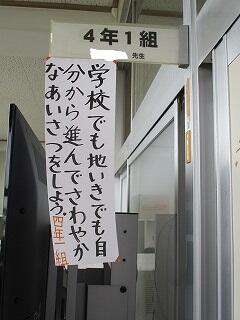 4年1組
先生
学校でも地いきでも自
分から進んでさわやか
なあいさつをしよう。四年一組